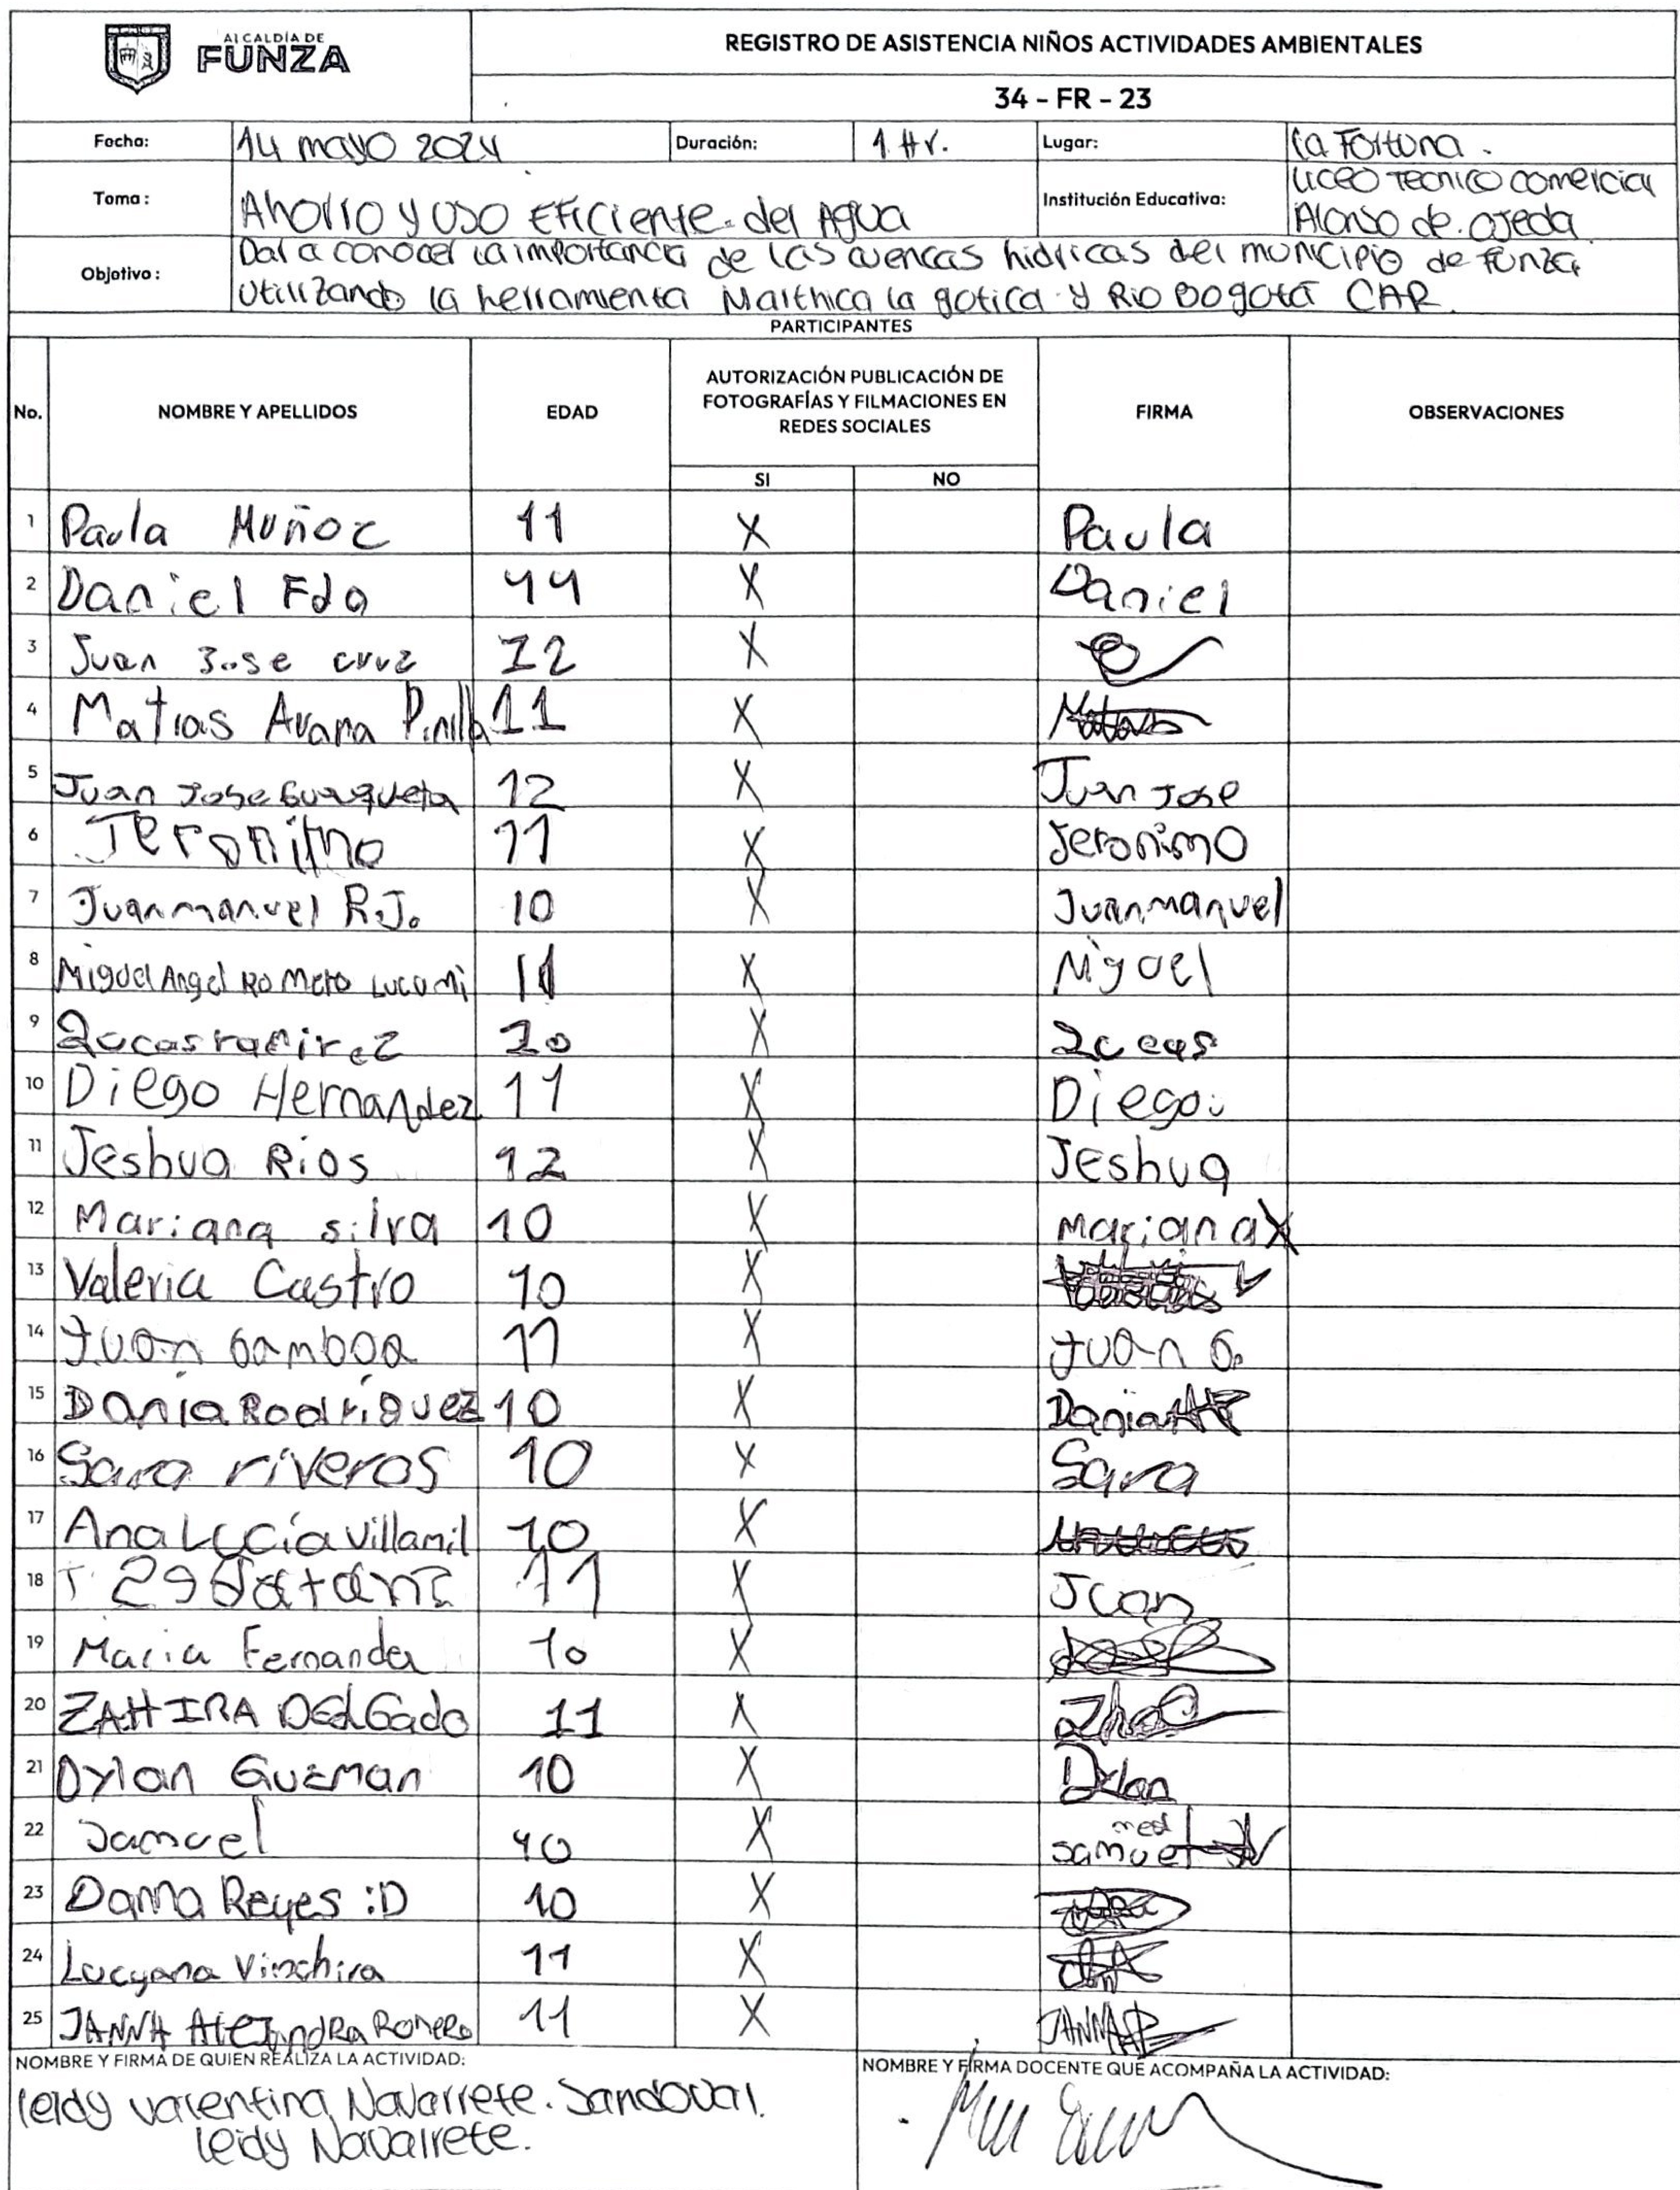 ALCALDÍA DE
FUNZA
REGISTRO DE ASISTENCIA NIÑOS ACTIVIDADES AMBIENTALES
34 - FR - 23
Fecha: 14 mayo 2024 Duración: 1 Hr. Lugar: La Fortuna.
Tema: Ahorro y uso Eficiente del Agua Institución Educativa: Liceo Tecnico comercial
Alonso de ojeda
Objetivo: Dar a conocer la importancia de las cuencas hidricas del municipio de Funza
utilizando la herramienta Marthica la gotica y Rio Bogotá CAR.
PARTICIPANTES
No. NOMBRE Y APELLIDOS EDAD AUTORIZACIÓN PUBLICACIÓN DE FOTOGRAFÍAS Y FILMACIONES EN REDES SOCIALES FIRMA OBSERVACIONES
SI NO
1 Paula Muñoz 11 X Paula
2 Daniel Fdo 11 X Daniel
3 Juan Jose cruz 12 X
4 Matias Avama Pinilla 11 X Matias
5 Juan Jose Guasqueta 12 X Juan Jose
6 Jeronimo 11 X Jeronimo
7 Juanmanuel R.J. 10 X Juanmanuel
8 Miguel Angel Romero Lucumi 11 X Miguel
9 Lucas ramirez 10 X Lucas
10 Diego Hernandez 11 X Diego
11 Jeshua Rios 12 X Jeshua
12 Mariana silva 10 X Mariana X
13 Valeria Castro 10 X
14 Juan Gamboa 11 X Juan G.
15 Dania Rodríguez 10 X Dania
16 Sara riveros 10 X Sara
17 Ana Lucía Villamil 10 X
18 11 X Juan
19 Maria Fernanda 10 X
20 ZAHIRA DElGado 11 X
21 Dylan Guzman 10 X Dylan
22 Samuel 10 X samuel
23 Danna Reyes :D 10 X
24 Lucyana Vinchira 11 X
25 JANNA AlEJAndRA RomERo 11 X JANNA
NOMBRE Y FIRMA DE QUIEN REALIZA LA ACTIVIDAD:
Leidy Valentina Navarrete Sandoval.
Leidy Navarrete.
NOMBRE Y FIRMA DOCENTE QUE ACOMPAÑA LA ACTIVIDAD: